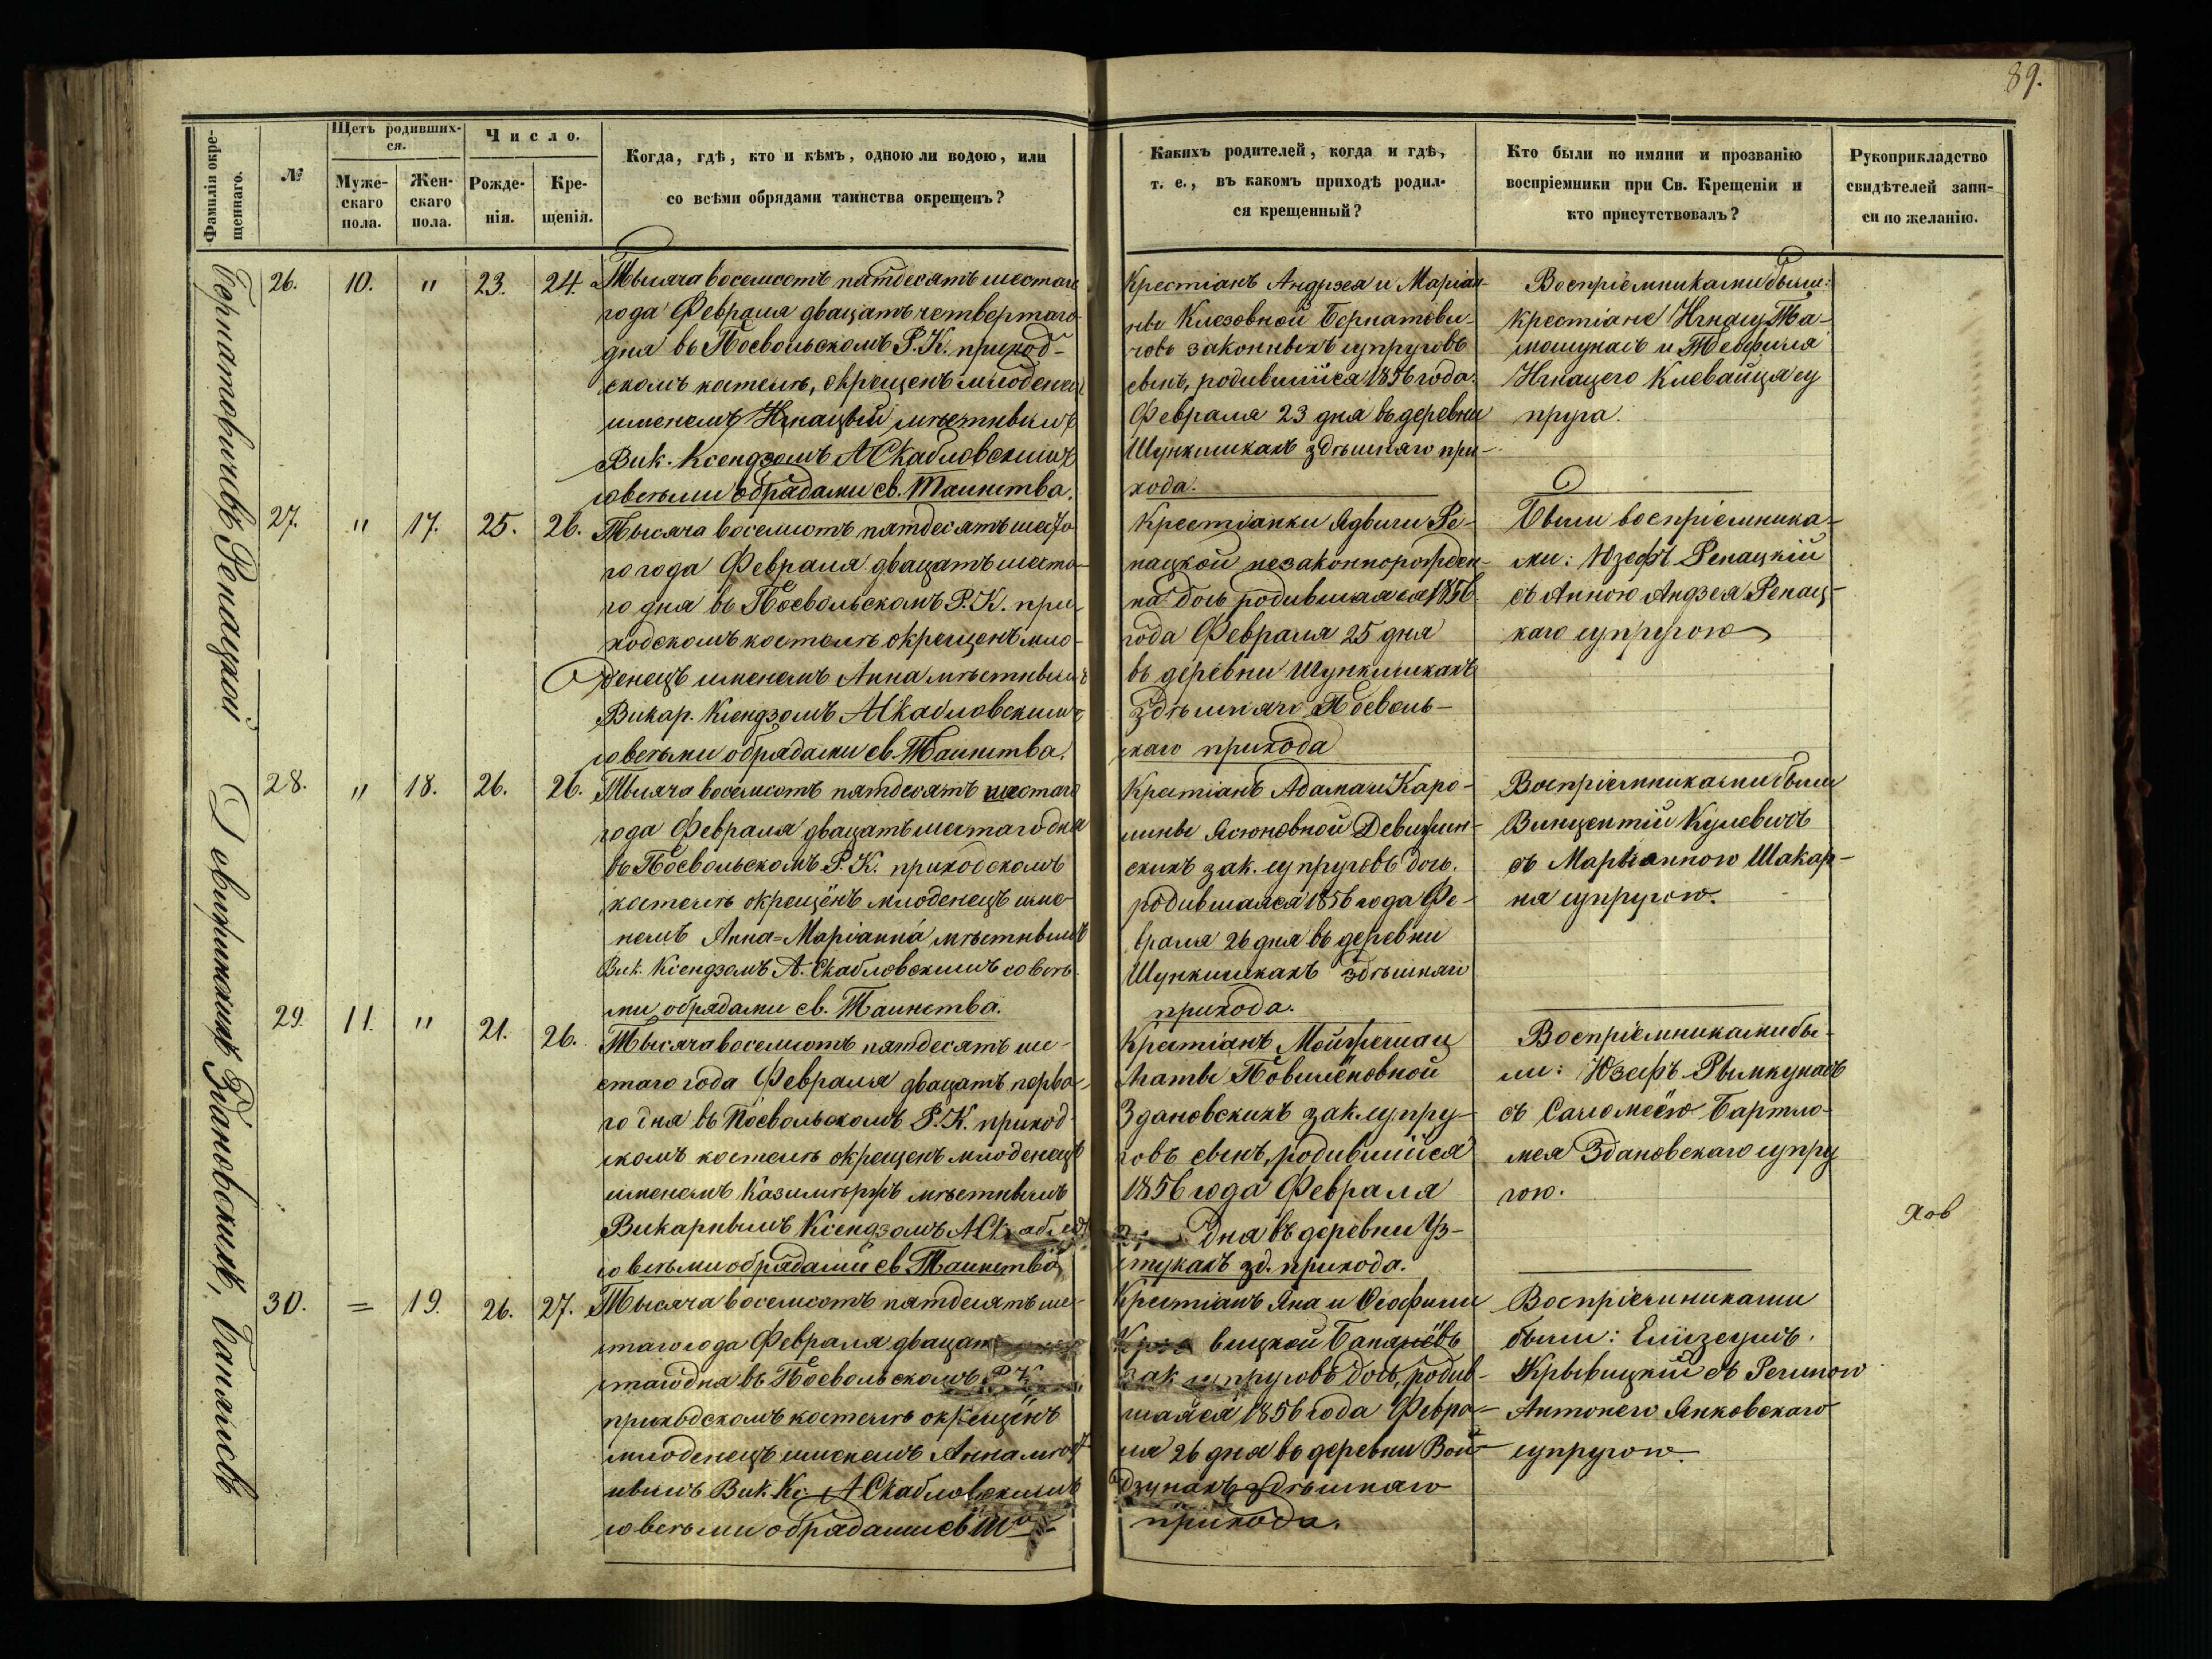 89.
Фамилія окре-
щеннаго.
№
Щетъ родивших-
ся.
Муже-
скаго
пола.
Жен-
скаго
пола.
Число.
Рожде-
нія.
Кре-
щенія.
Когда, гдѣ, кто и кѣмъ, одною ли водою, или
со всѣми обрядами таинства окрещенъ?
Какихъ родителей, когда и гдѣ,
т. е., въ какомъ приходѣ родил-
ся крещенный?
Кто были по имяни и прозванію
воспріемники при Св. Крещеніи и
кто присутствовалъ?
Рукоприкладство
свидѣтелей запи-
си по желанію.
26.
10.
"
23.
24.
Тысяча восемсотъ пятдесятъ шестаго
года Февраля двацатъ четвертаго
дня въ Посвольскомъ Р. К. приход-
скомъ костелѣ, окрещенъ младенецъ
именемъ Игнацый мѣстнымъ
Вик. Ксендзомъ А Скабловскимъ
совсѣми обрядами св. Таинства.
Крестіанъ Андржея и Маріан-
ны Клезовной Бернатови-
човъ законныхъ супруговъ
сынъ, родившійся 1856 года
Февраля 23 дня въ деревни
Шункишкахъ здѣшняго при-
хода.
Воспріемниками были:
крестіане Игнацы Та-
мошунасъ и Теофиля
Игнацего Клевайця су
пруга.
Бернатовичъ
27.
"
17.
25.
26.
Тысяча восемсотъ пятдесятъ шесто
го года Февраля двацатъ шесто-
го дня въ Посвольскомъ Р. К. при
ходскомъ костелѣ окрещенъ мло-
денецъ именемъ Анна мѣстнымъ
Викар. Ксендзомъ А Скабловскимъ
совсѣми обрядами св. Таинства.
Крестіанки Ядвиги Ре-
пацкой незаконнорожден-
на дочь родившаяся 1856
года Февраля 25 дня
въ деревни Шункишкахъ
здѣшняго Посволь-
скаго прихода
Были воспріемника-
ми: Юзефъ Репацкій
съ Анною Андзея Репац-
каго супругою
Репацкой
28.
"
18.
26.
26.
Тысяча восемсотъ пятдесятъ шестаго
года Февраля двацатъ шестаго дня
въ Посвольскомъ Р. К. приходскомъ
костелѣ окрещёнъ млоденецъ име-
немъ Анна=Маріанна мѣстнымъ
Вик. Ксендзомъ А. Скабловскимъ со всѣ-
ми обрядами св. Таинства.
Крестіанъ Адама и Каро-
лины Ясюновной
скихъ зак. супруговъ дочь.
родившаяся 1856 года Фе-
враля 26 дня въ деревни
Шункишкахъ здѣшняго
прихода.
Воспріемниками были
Винцентій Кулевичъ
съ Марыанною Шакар-
ня супругою.
29.
11.
"
21.
26.
Тысяча восемсотъ пятдесятъ ше-
стаго года Февраля двацатъ перва-
го дня въ Посвольскомъ Р. К. приход-
скомъ костелѣ окрещенъ млоденецъ
именемъ Казимѣржъ мѣстнымъ
Викарнымъ Ксендзомъ А Скабл
совсѣми обрядами св Таинства
Крестіанъ
Агаты Повилёновной
Здановскихъ зак. супру-
говъ сынъ, родившійся
1856 года Февраля
дня въ деревни Уз-
тукахъ зд. прихода.
Воспріемниками бы-
ли: Юзефъ Рымкунасъ
съ Саломеёю Бартло-
мея Здановскаго супру
гою.
Здановскихъ,
30.
=
19.
26.
27.
Тысяча восемсотъ пятдесятъ ше-
стаго года Февраля двацат
стаго дня въ Посвольскомъ Р К
приходскомъ костелѣ окрещёнъ
млоденецъ именемъ Анна мѣст
нымъ Вик. Кс. А Скабловскимъ
совсѣми обрядами св
Крестіанъ Яна и Теофили
вицкой
зак супруговъ дочь, родив-
шаяся 1856 года Февра-
ля 26 дня въ деревни Вой-
дзунахъ здѣшняго
прихода.
Воспріемниками
были:
Крывицкій съ Регином
Антонего Янковскаго
супругою.